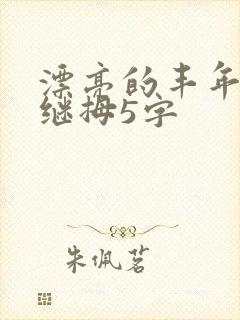 漂亮的丰年
继拇5字
朱佩茗